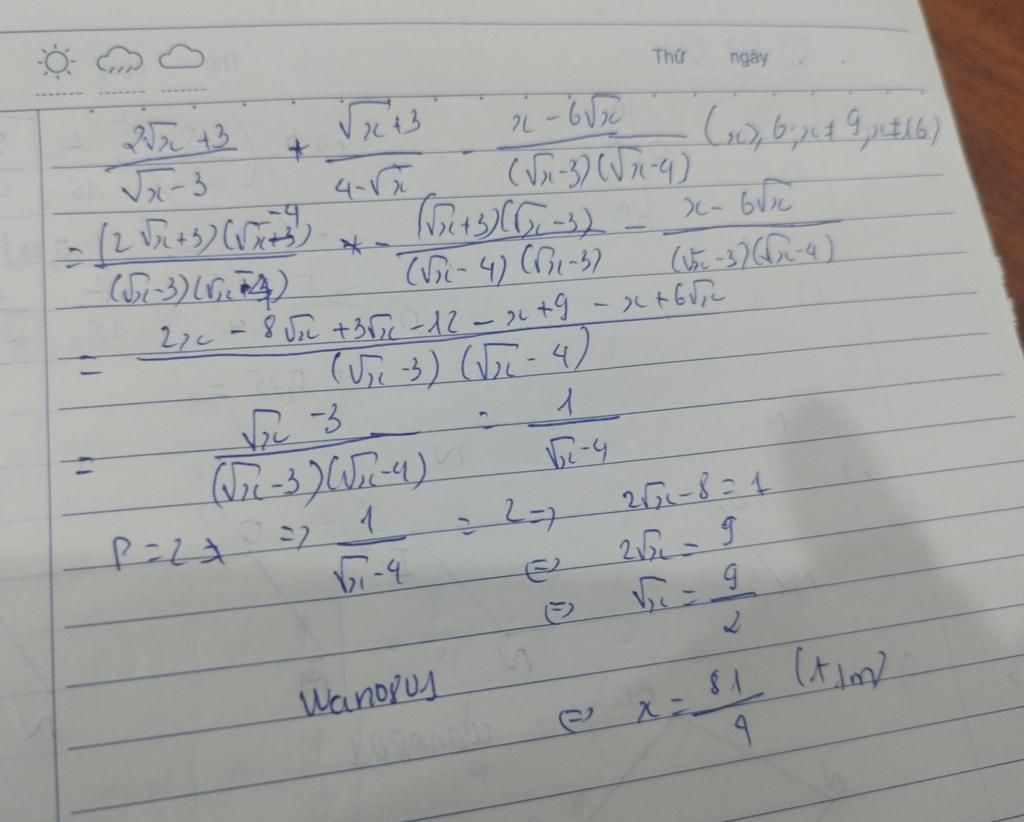 Thứ ngày
(2√x + 3)/(√x - 3) + (√x + 3)/(4 - √x) - (x - 6√x)/((√x - 3)(√x - 4)) (x ≥ 6; x ≠ 9, x ≠ 16)
= ((2√x + 3)(√x - 4))/((√x - 3)(√x - 4)) - ((√x + 3)(√x - 3))/((√x - 4)(√x - 3)) - (x - 6√x)/((√x - 3)(√x - 4))
= (2x - 8√x + 3√x - 12 - x + 9 - x + 6√x)/((√x - 3)(√x - 4))
= (√x - 3)/((√x - 3)(√x - 4)) = 1/(√x - 4)
P = 2 => 1/(√x - 4) = 2 => 2√x - 8 = 1
⇔ 2√x = 9
⇔ √x = 9/2
Wano801
⇔ x = 81/4 (t/m)